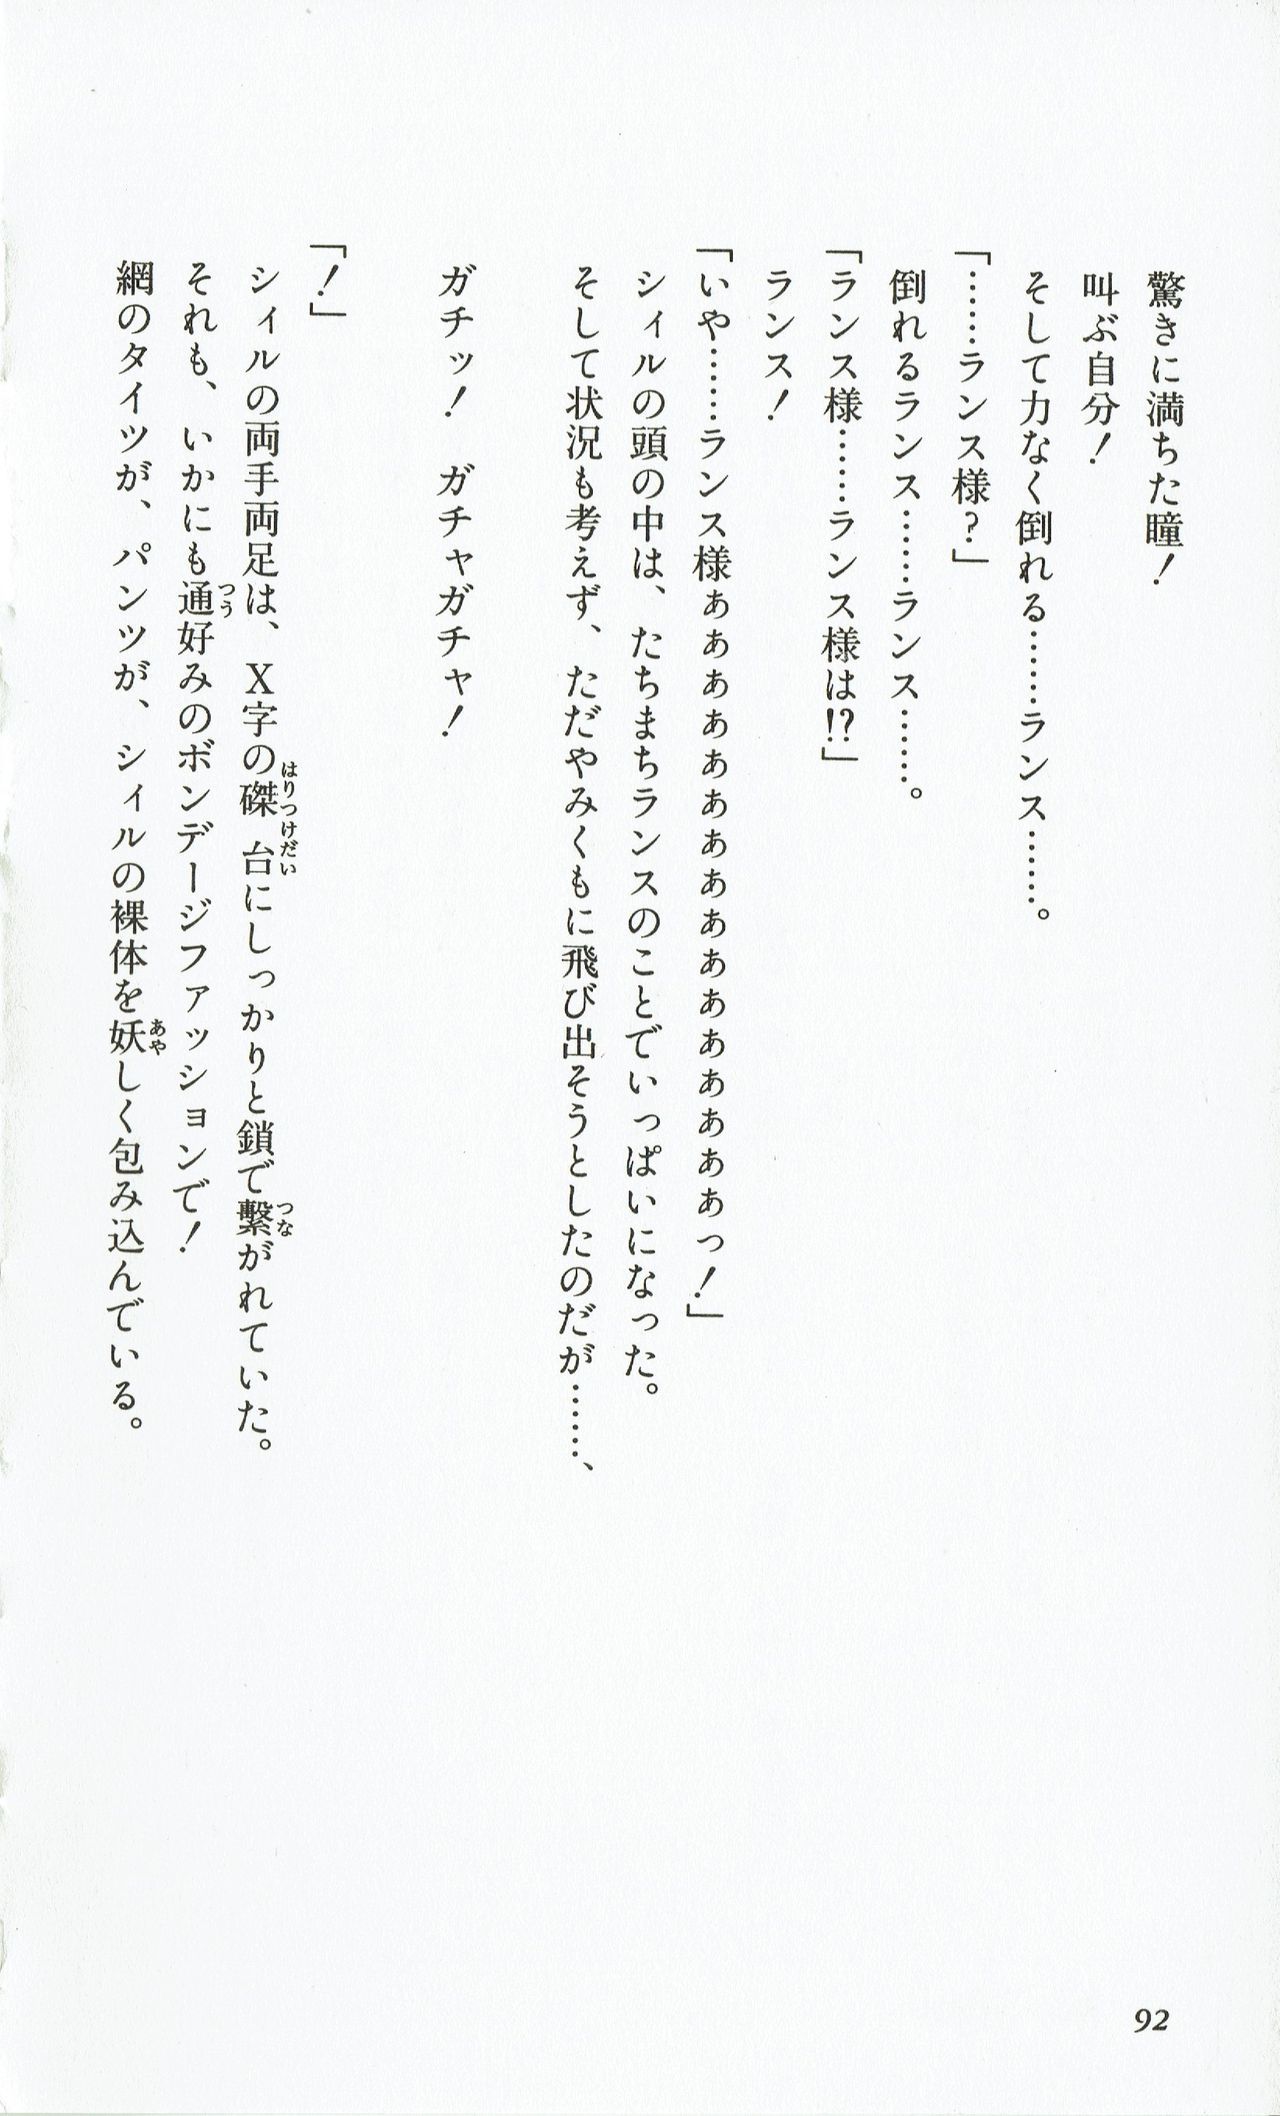 驚きに満ちた瞳!
叫ぶ自分!
そして力なく倒れる……ランス……。
「……ランス様?」
倒れるランス……ランス……。
「ランス様……ランス様は!?」
ランス!
「いや……ランス様ぁぁぁぁぁぁぁぁぁぁぁぁぁぁぁぁっ!」
シィルの頭の中は、たちまちランスのことでいっぱいになった。
そして状況も考えず、ただやみくもに飛び出そうとしたのだが……、
ガチッ! ガチャガチャ!
「!」
シィルの両手両足は、X字の磔台にしっかりと鎖で繋がれていた。
はりつけだい
つな
それも、いかにも通好みのボンデージファッションで!
つう
網のタイツが、パンツが、シィルの裸体を妖しく包み込んでいる。
あや
92